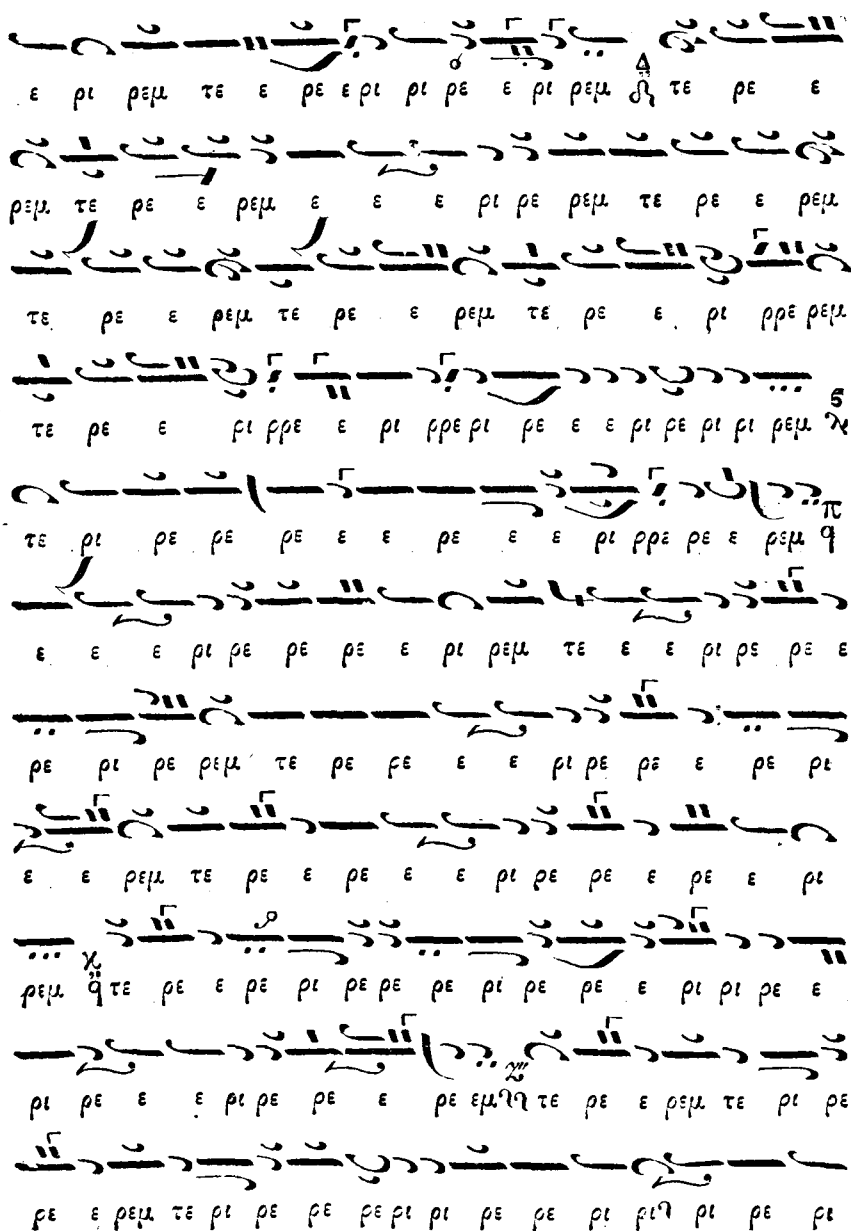 ε ρι ρεμ τε ε ρε ε ρι ρι ρε ε ρι ρεμ Δ τε ρε ε
ρεμ τε ρε ε ρεμ ε ε ε ρι ρε ρεμ τε ρε ε ρεμ
τε ρε ε ρεμ τε ρε ε ρεμ τε ρε ε ρι ρρε ρεμ
τε ρε ε ρι ρρε ε ρι ρρε ρι ρε ε ε ρι ρε ρι ρι ρεμ
τε ρι ρε ρε ρε ε ε ρε ε ε ρι ρρε ρε ε ρεμ π q
ε ε ε ρι ρε ρε ρε ε ρι ρεμ τε ε ε ρι ρε ρε ε
ρε ρι ρε ρεμ τε ρε ρε ε ε ρι ρε ρε ε ρε ρι
ε ε ρεμ τε ρε ε ρε ε ε ρι ρε ρε ε ρε ε ρι
ρεμ κ q τε ρε ε ρε ρι ρε ρε ρε ρι ρε ρε ε ρι ρι ρε ε
ρι ρε ε ε ρι ρε ρε ε ρε εμ τε ρε ε ρεμ τε ρι ρε
ρε ε ρεμ τε ρι ρε ρε ρε ρι ρι ρε ρε ρι ρι ρι ρε ρι